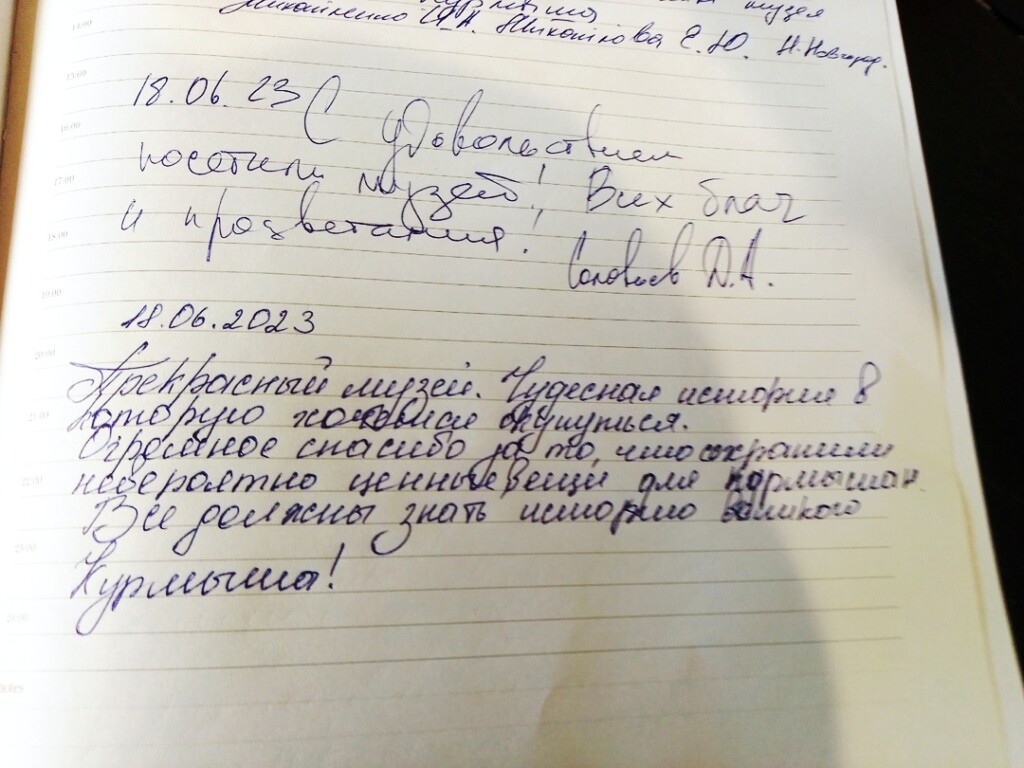 музея
И.А. Е.Ю. Н.Новгород.
14:00
15:00
18.06.23 С удовольствием
16:00
посетили музей! Всех благ
17:00
и процветания!
18:00
Соловьев Д.А.
19:00
18.06.2023
20:00
Прекрасный музей. Чудесная история в
21:00
которую хотелось окунуться.
Огромное спасибо за то, что сохранили
22:00
невероятно ценные вещи для курмышан.
Все должны знать историю великого
23:00
Курмыша!
24:00
notes